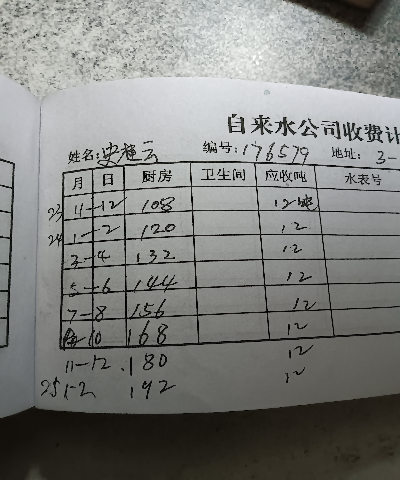 自来水公司收费计
姓名: 史 云 编号: 176579 地址: 3-
月 日 厨房 卫生间 应收吨 水表号
23 11-12 108 12吨
24 1-2 120 12
3-4 132 12
5-6 144 12
7-8 156 12
10 168 12
11-12 180 12
25 1-2 192 12